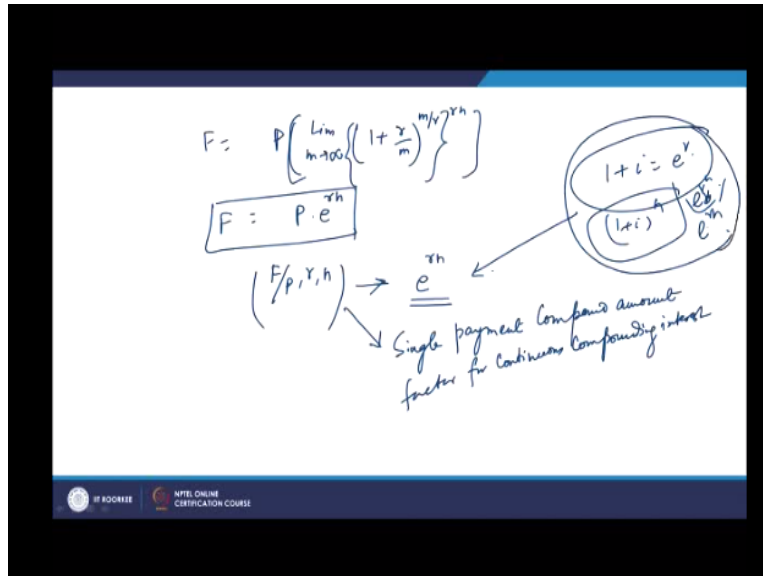 F = P [ Lim m→∞ { (1 + r/m)^{m/r} }^{rn} ]
1 + i = e^r
F = P . e^{rn}
(1+i)^n
e^{rn}
(F/P, r, n) → e^{rn}
Single payment Compound amount
factor for continuous compounding interest
IIT ROORKEE
NPTEL ONLINE
CERTIFICATION COURSE